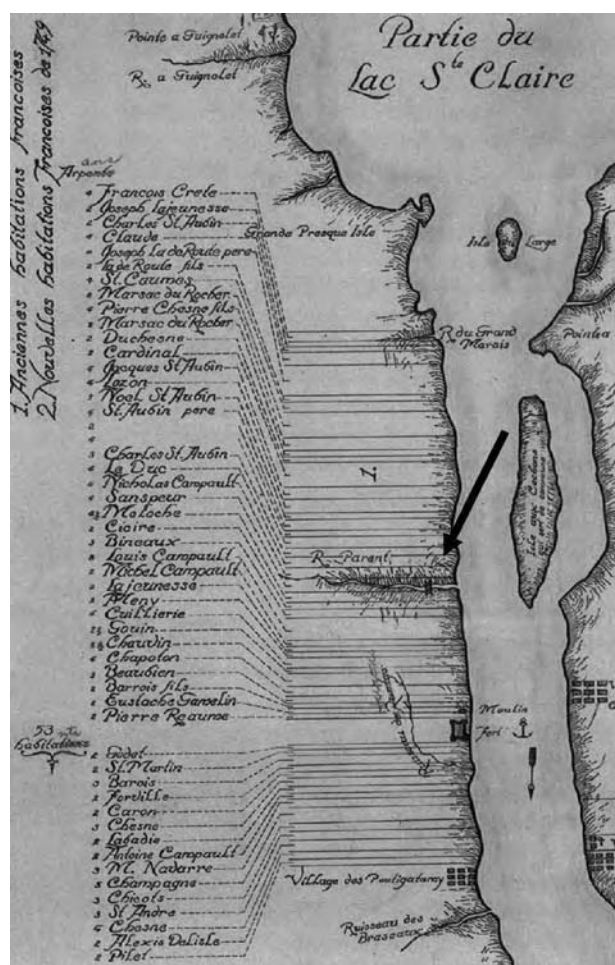 Pointe a Guignolet
R. a Guignolet
Partie du
Lac Ste Claire
1. Anciennes habitations francoises
2. Nouvelles habitations Francoises de 1749
ans
Arpents
4 Francois Crete
2 Joseph Lajeunesse
2 Charles St. Aubin
4 Claude
Joseph La de Route pere
2 la de Route fils
4 St. Caumes
2 Marsac du Rocher
4 Pierre Chesne fils
2 Marsac du Rocher
2 Duchesne
2 Cardinal
Jacques St Aubin
Lozon
Noel St Aubin
4 St. Aubin pere
2
4
3 Charles St. Aubin
4 Le Duc
Nicholas Campault
4 Sanspeur
Meloche
2 Cicire
3 Bineaux
8 Louis Campault
2 Michel Campault
Lajeunesse
Meny
4 Cuillierie
Gouin
Chauvin
4 Chapoton
3 Beaubien
2 Barrois fils
2 Eustache Gamelin
2 Pierre Reaume
53
habitations
2 Godet
2 St. Martin
3 Barois
2 Forville
2 Caron
3 Chesne
2 Labadie
2 Antoine Campault
3 M. Navarre
5 Champagne
3 Chicots
3 St Andre
Chesne
2 Alexis Delisle
2 Pilet
Grande Presque Isle
Isle du Large
R du Grand
Marais
Pointe a
1.
Isle aux Cochons
R. Parent
Ruisseau
Moulin
Fort
Village des Poutigatamy
Ruisseau des
Braseaux